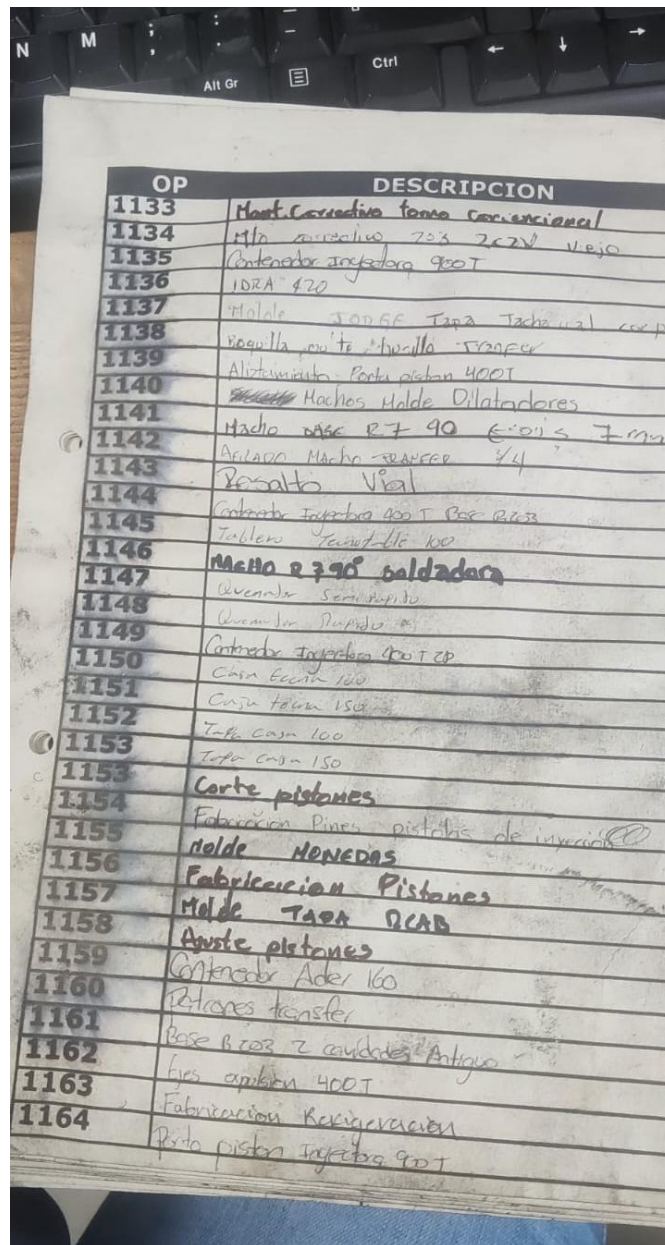 N M ; : - Alt Gr Ctrl ← ↓ →
OP DESCRIPCION
1133 Mant. Correctivo torno convencional
1134 Mto correctivo viejo
1135 Contenedor Inyectora 900T
1136 IDRA 420
1137 Molde Tapa
1138 Boquilla
1139 Alistamiento Porta piston 400T
1140 Machos Molde Dilatadores
1141 Macho BASE R7 90
1142 AFILADO MAcho TRANFER 3/4
1143 Resalto Vial
1144 Contenedor Inyectora 900 T Base
1145 Tablero 100
1146 MACHO R 790° soldadora
1147 Quemador Semi Rapido
1148 Quemador Rapido
1149 Contenedor Inyectora 900 T
1150 Caja 100
1151 Caja 150
1152 Tapa Caja 100
1153 Tapa Caja 150
1153 Corte pistones
1154 Fabricacion Pines pistones de inyeccion
1155 Molde MONEDAS
1156 Fabricacion Pistones
1157 Molde TAPA RCAB
1158 Ajuste pistones
1159 Contenedor Ader 160
1160 Patrones transfer
1161 Base B203 2 cavidades Antiguo
1162 Ejes expulsion 400T
1163 Fabricacion Refrigeracion
1164 Porta piston Inyectora 900T